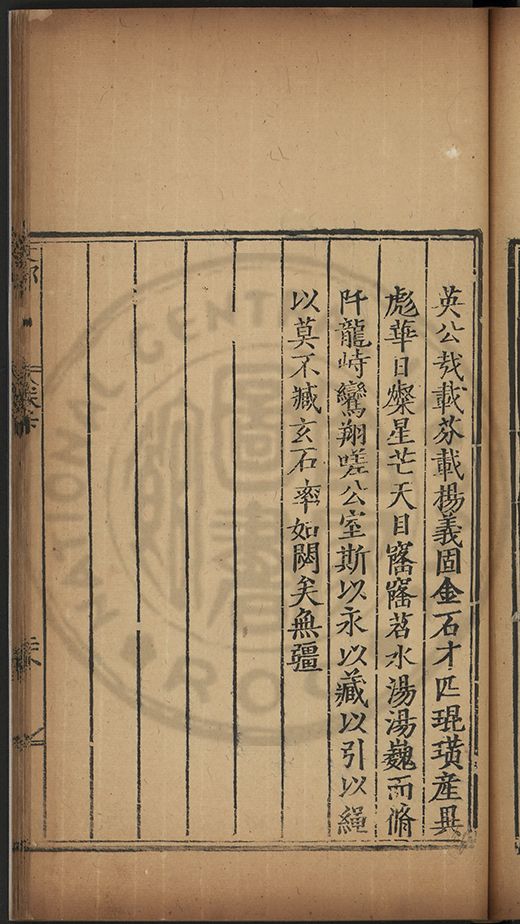 英公哉載芬載楊義固金石才匹琨璜產異
彪華日燦星芒天目窰窰苕水湯湯巍而脩
阡龍峙鸞翔嗟公室斯以永以藏以引以繩
以莫不臧玄石率如闕矣無疆